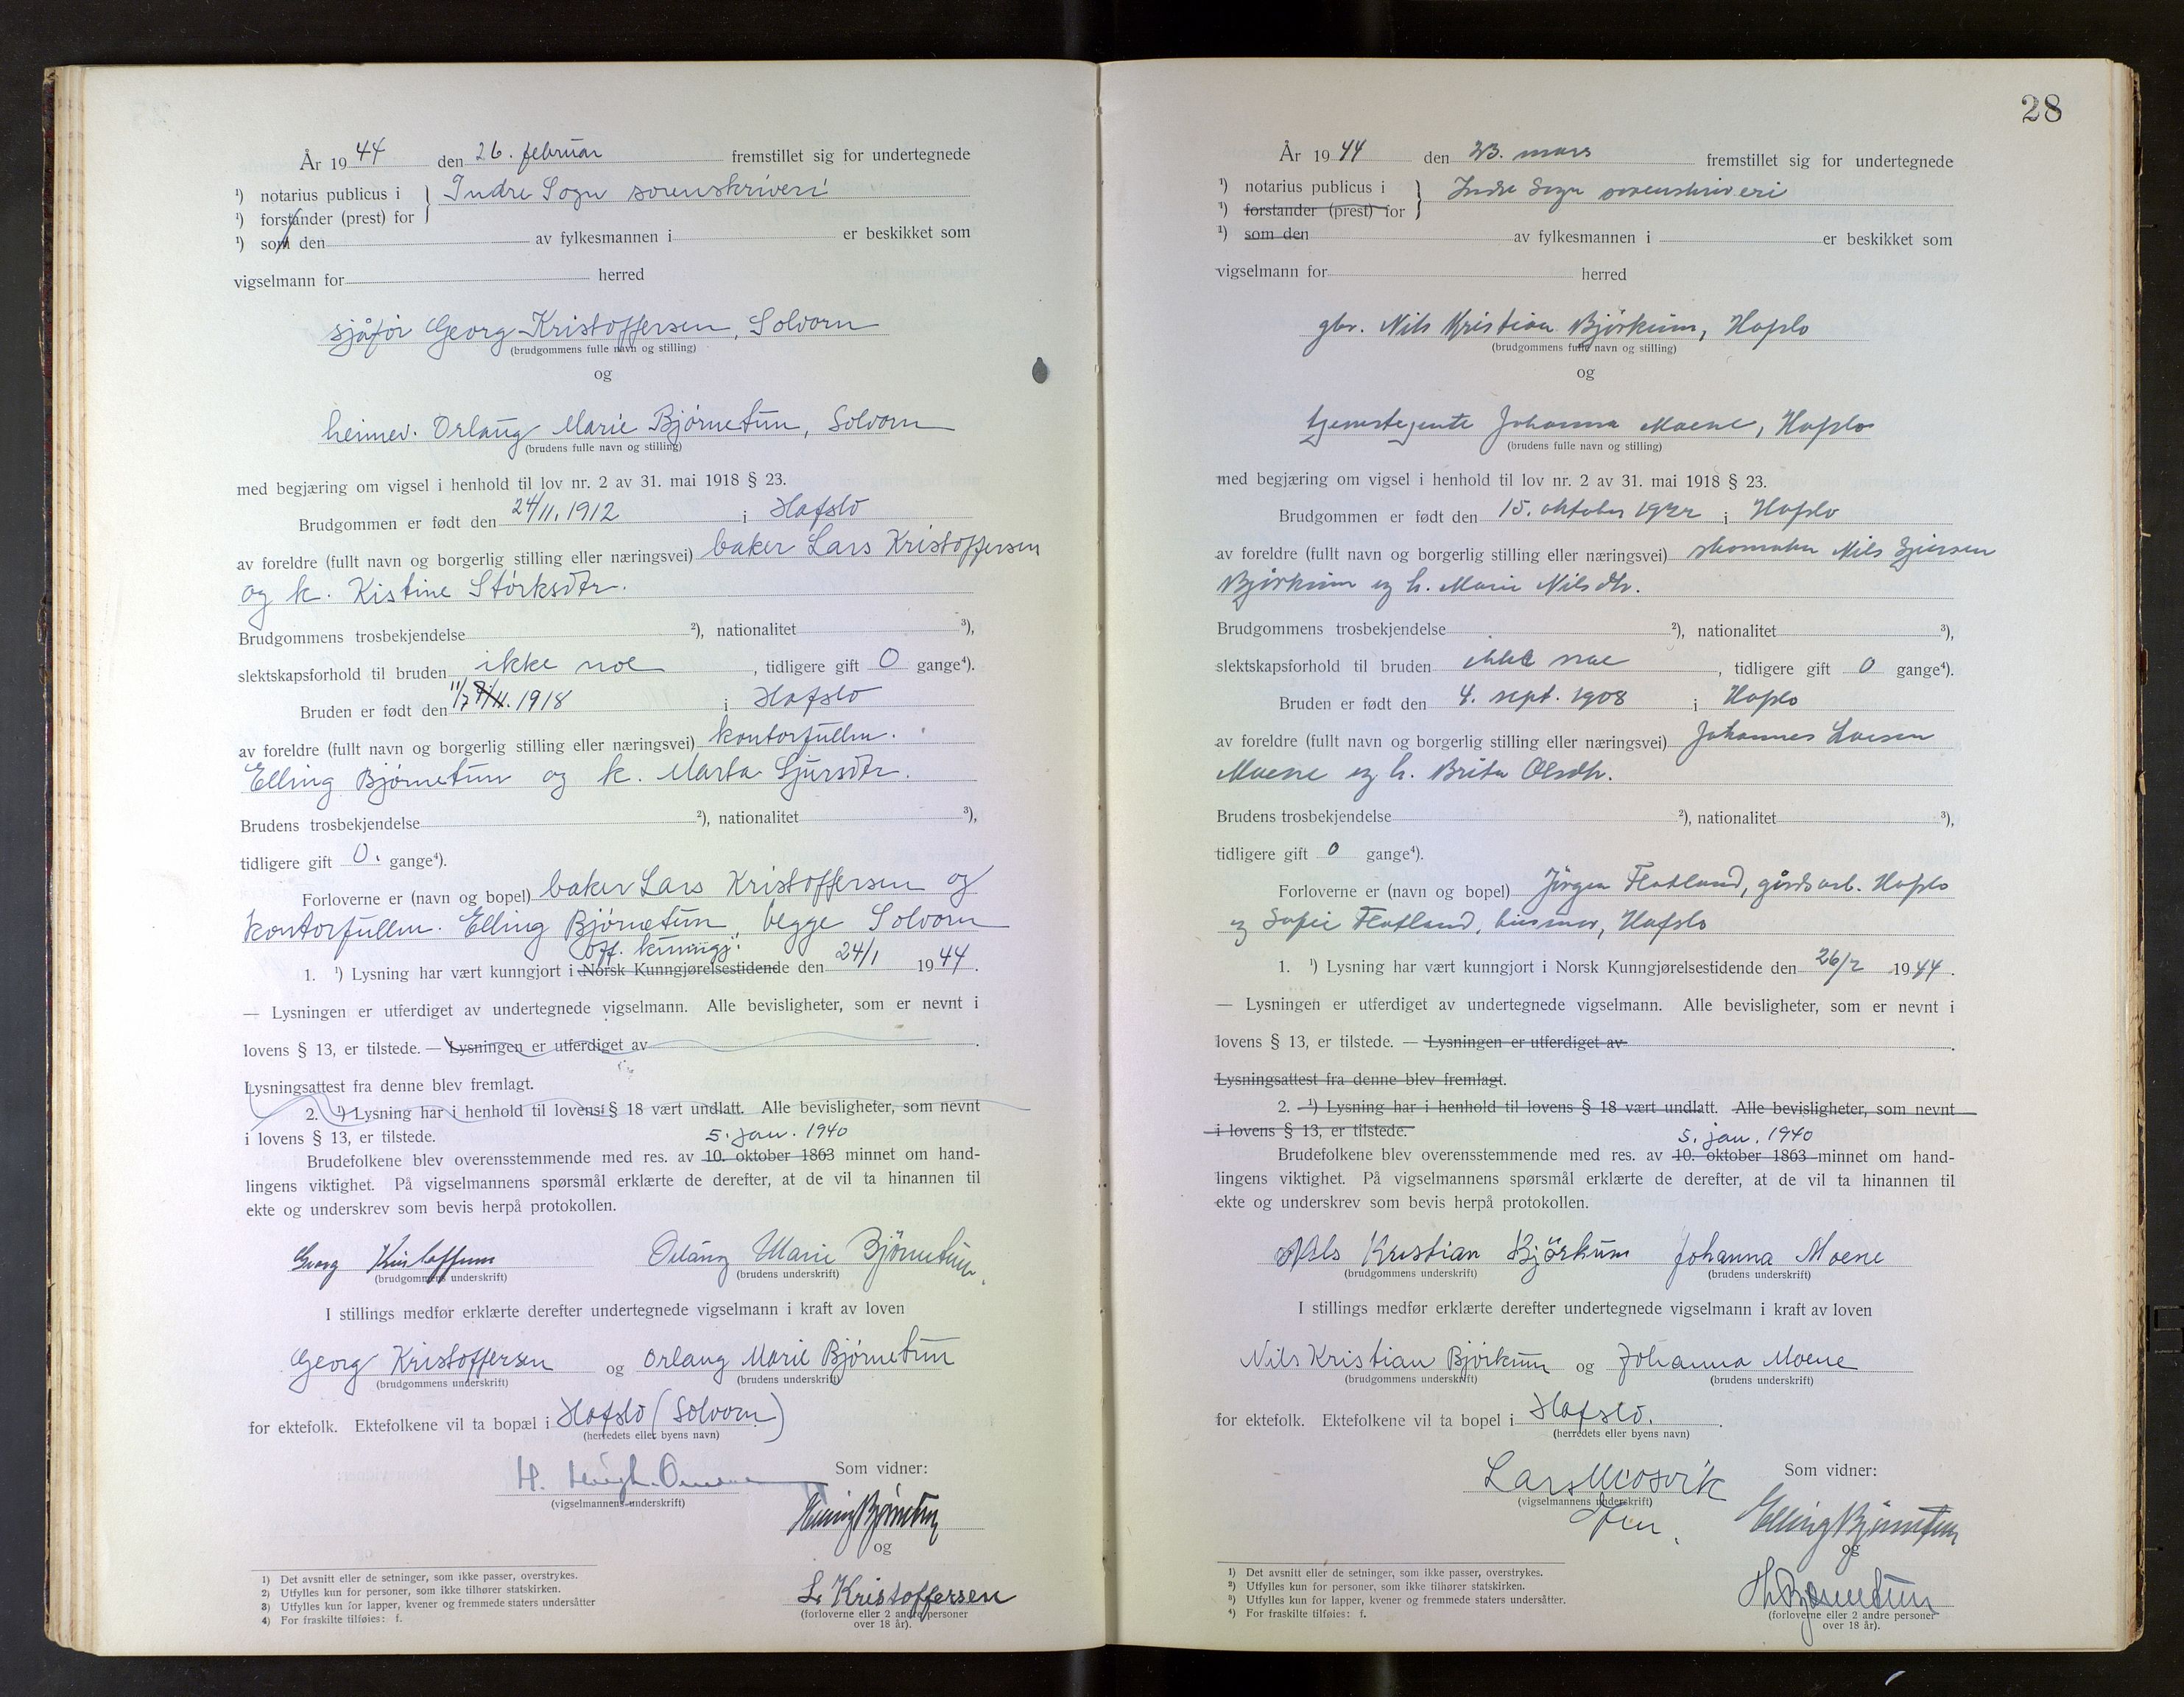 År 1944 den 26. februar fremstillet sig for undertegnede
¹) notarius publicus i } Indre Sogn sorenskriveri
¹) forstander (prest) for
¹) som den av fylkesmannen i er beskikket som
vigselmann for herred
sjåfør Georg Kristoffersen, Solvorn
(brudgommens fulle navn og stilling)
og
heimev. Orlaug Marie Bjørnetun, Solvorn
(brudens fulle navn og stilling)
med begjæring om vigsel i henhold til lov nr. 2 av 31. mai 1918 § 23.
Brudgommen er født den 24/11. 1912 i Hafslo
av foreldre (fullt navn og borgerlig stilling eller næringsvei) baker Lars Kristoffersen
og k. Kistine Størksdtr.
Brudgommens trosbekjendelse ²), nationalitet ³),
slektskapsforhold til bruden ikke noe, tidligere gift 0 gange⁴).
Bruden er født den 11/7 1918 i Hafslo
av foreldre (fullt navn og borgerlig stilling eller næringsvei) kontorfullm.
Elling Bjørnetun og k. Marta Sjursdtr.
Brudens trosbekjendelse ²), nationalitet ³),
tidligere gift 0. gange⁴).
Forloverne er (navn og bopel) baker Lars Kristoffersen og
kontorfullm. Elling Bjørnetun, begge Solvorn
off. kunngj.
1. ¹) Lysning har vært kunngjort i Norsk Kunngjørelsestidende den 24/1 1944.
— Lysningen er utferdiget av undertegnede vigselmann. Alle bevisligheter, som er nevnt i
lovens § 13, er tilstede. — Lysningen er utferdiget av .
Lysningsattest fra denne blev fremlagt.
2. ¹) Lysning har i henhold til lovens § 18 vært undlatt. Alle bevisligheter, som nevnt
i lovens § 13, er tilstede.
5. jan. 1940
Brudefolkene blev overensstemmende med res. av 10. oktober 1863 minnet om hand-
lingens viktighet. På vigselmannens spørsmål erklærte de derefter, at de vil ta hinannen til
ekte og underskrev som bevis herpå protokollen.
Georg Kristoffersen Orlaug Marie Bjørnetun.
(brudgommens underskrift) (brudens underskrift)
I stillings medfør erklærte derefter undertegnede vigselmann i kraft av loven
Georg Kristoffersen og Orlaug Marie Bjørnetun
(brudgommens underskrift) (brudens underskrift)
for ektefolk. Ektefolkene vil ta bopæl i Hafslo (Solvorn)
(herredets eller byens navn)
H.
(vigselmannens underskrift)
Som vidner:
Elling Bjørnetun
og
L. Kristoffersen
(forloverne eller 2 andre personer
over 18 år).
1) Det avsnitt eller de setninger, som ikke passer, overstrykes.
2) Utfylles kun for personer, som ikke tilhører statskirken.
3) Utfylles kun for lapper, kvener og fremmede staters undersåtter
4) For fraskilte tilføies: f.
28
År 1944 den 23. mars fremstillet sig for undertegnede
¹) notarius publicus i } Indre Sogn sorenskriveri
¹) forstander (prest) for
¹) som den av fylkesmannen i er beskikket som
vigselmann for herred
gbr. Nils Kristian Bjørkum, Hafslo
(brudgommens fulle navn og stilling)
og
tjenestejente Johanna Moene, Hafslo
(brudens fulle navn og stilling)
med begjæring om vigsel i henhold til lov nr. 2 av 31. mai 1918 § 23.
Brudgommen er født den 15. oktober 1922 i Hafslo
av foreldre (fullt navn og borgerlig stilling eller næringsvei) skomaker Nils
Bjørkum og h. Marie Nilsdtr.
Brudgommens trosbekjendelse ²), nationalitet ³),
slektskapsforhold til bruden ikke noe, tidligere gift 0 gange⁴).
Bruden er født den 4. sept. 1908 i Hafslo
av foreldre (fullt navn og borgerlig stilling eller næringsvei) Johannes Larsen
Moene og h. Brita Olsdtr.
Brudens trosbekjendelse ²), nationalitet ³),
tidligere gift 0 gange⁴).
Forloverne er (navn og bopel) Jørgen Flatland, gårdsarb. Hafslo
og Sofie Flatland, husmor, Hafslo
1. ¹) Lysning har vært kunngjort i Norsk Kunngjørelsestidende den 26/2 1944.
— Lysningen er utferdiget av undertegnede vigselmann. Alle bevisligheter, som er nevnt i
lovens § 13, er tilstede. — Lysningen er utferdiget av .
Lysningsattest fra denne blev fremlagt.
2. ¹) Lysning har i henhold til lovens § 18 vært undlatt. Alle bevisligheter, som nevnt
i lovens § 13, er tilstede.
5. jan. 1940
Brudefolkene blev overensstemmende med res. av 10. oktober 1863 minnet om hand-
lingens viktighet. På vigselmannens spørsmål erklærte de derefter, at de vil ta hinannen til
ekte og underskrev som bevis herpå protokollen.
Nils Kristian Bjørkum Johanna Moene
(brudgommens underskrift) (brudens underskrift)
I stillings medfør erklærte derefter undertegnede vigselmann i kraft av loven
Nils Kristian Bjørkum og Johanna Moene
(brudgommens underskrift) (brudens underskrift)
for ektefolk. Ektefolkene vil ta bopel i Hafslo.
(herredets eller byens navn)
Lars
(vigselmannens underskrift)
Som vidner:
Elling Bjørnetun
og
Bjørnetun
(forloverne eller 2 andre personer
over 18 år).
¹) Det avsnitt eller de setninger, som ikke passer, overstrykes.
²) Utfylles kun for personer, som ikke tilhører statskirken.
³) Utfylles kun for lapper, kvener og fremmede staters undersåtter.
⁴) For fraskilte tilføies: f.